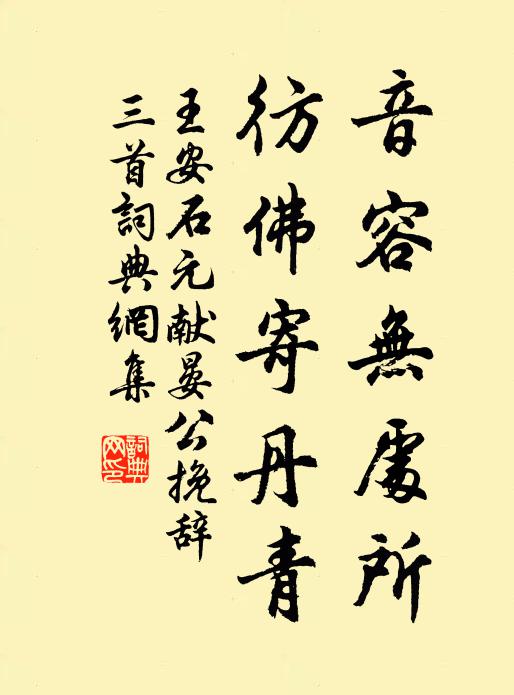 音容無處所
彷佛寄丹青
王安石元献晏公挽辞
三首詞典網集
詞典
网印